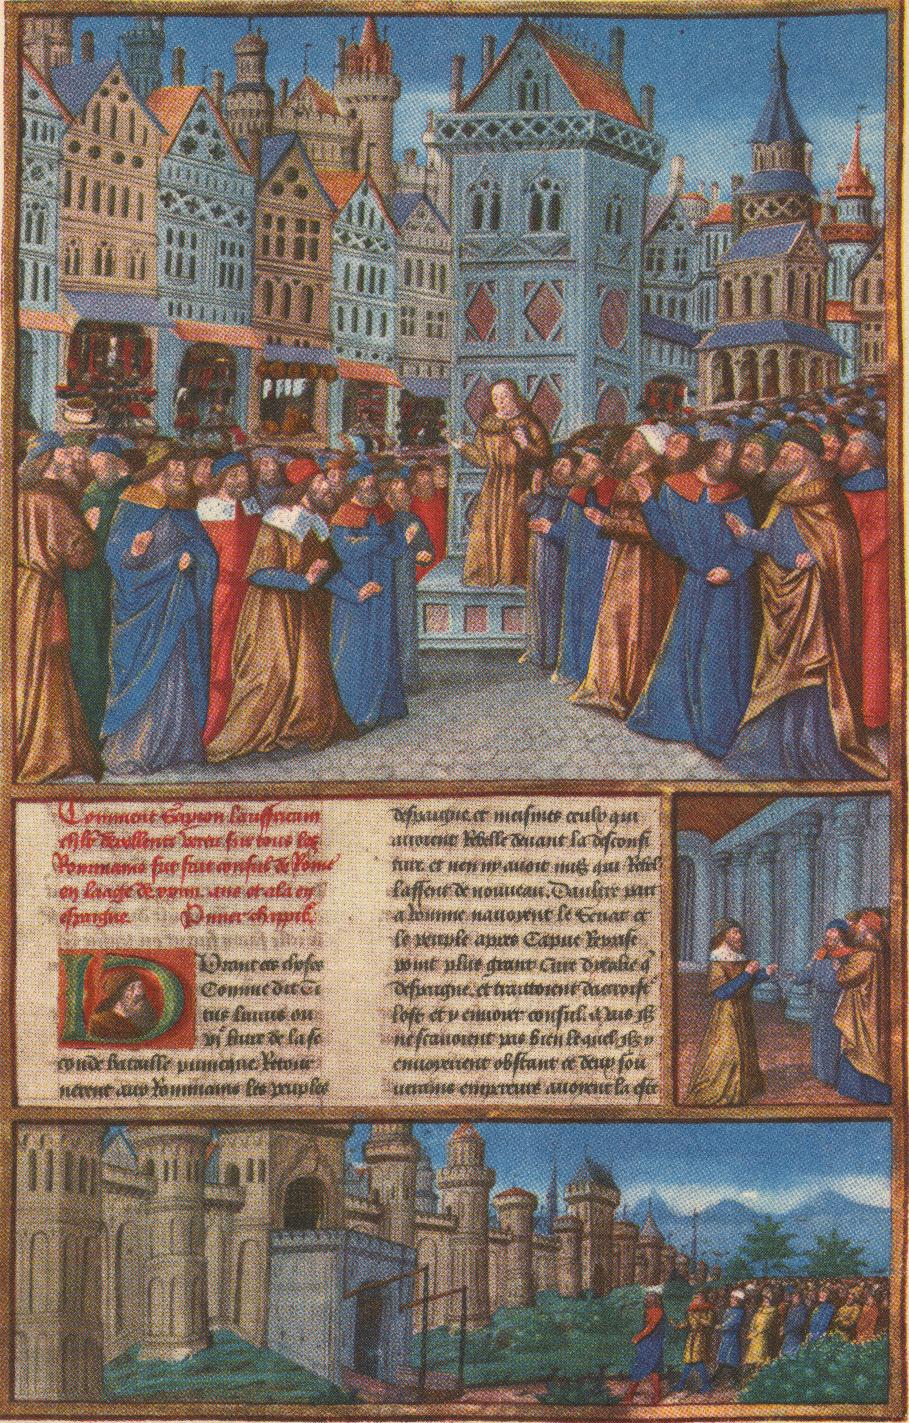 Comment Scipion lauffricain
chlr dexcellente vertu sur tous les
Rommains fut fait consul de Rome
en laage de xxiiii. ans et ala en
espaigne. Pmier chapitre.
Durant ces choses
Comme dit Ti
tus liuius ou
vi liure de la se
conde bataille punicque Retour
nerent aux Rommains les peuples
despaigne. et mesmes ceulx qui
auoient Rebelle deuant la desconfi
ture. et nen my auoit nulz qui Rebel
lassent de nouueau. Daultre part
a Romme nauoyent le Senat et
le peuple apres Capue Reprise
point plus grant Cure dytalie q
despaigne. et traittoient dacroistre
lost et y enuoier consul. Mais ilz
ne scauoient pas bien lequel ilz y
enuoyeroient obstant que deux sou
uerains empereurs auoyent la este